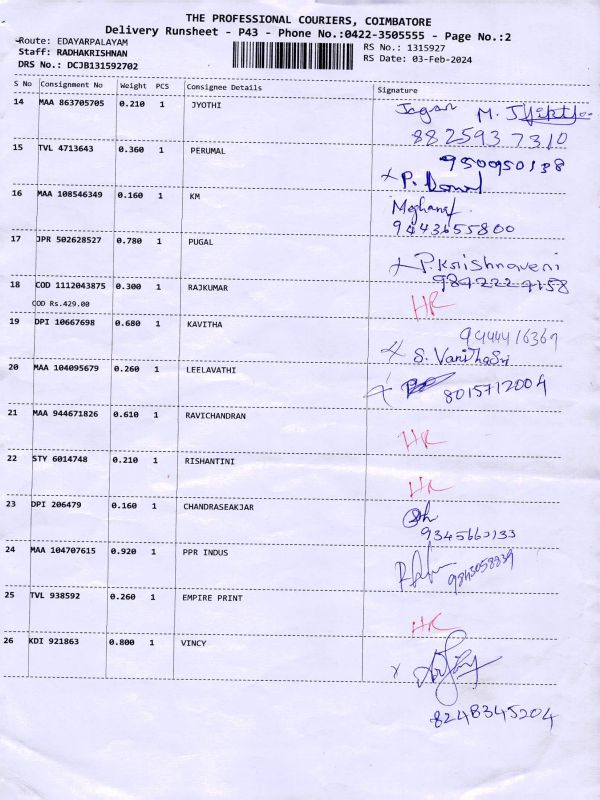 THE PROFESSIONAL COURIERS, COIMBATORE
Delivery Runsheet - P43 - Phone No.:0422-3505555 - Page No.:2
Route: EDAYARPALAYAM
RS No.: 1315927
Staff: RADHAKRISHNAN
RS Date: 03-Feb-2024
DRS No.: DCJB131592702
S No Consignment No Weight PCS Consignee Details Signature
14 MAA 863705705 0.210 1 JYOTHI Jagan M.
88 25937310
15 TVL 4713643 0.360 1 PERUMAL 9500950138
P.
16 MAA 108546349 0.160 1 KM
9443655800
17 JPR 502628527 0.780 1 PUGAL P. Krishnaveni
18 COD 1112043875 0.300 1 RAJKUMAR HR
COD Rs.429.00
19 DPI 10667698 0.680 1 KAVITHA
S. Vanithasri
20 MAA 104095679 0.260 1 LEELAVATHI 8015712004
21 MAA 944671826 0.610 1 RAVICHANDRAN HR
22 STY 6014748 0.210 1 RISHANTINI HR
23 DPI 206479 0.160 1 CHANDRASEAKJAR
9345660133
24 MAA 104707615 0.920 1 PPR INDUS 9843058839
25 TVL 938592 0.260 1 EMPIRE PRINT HR
26 KDI 921863 0.800 1 VINCY
8248345204